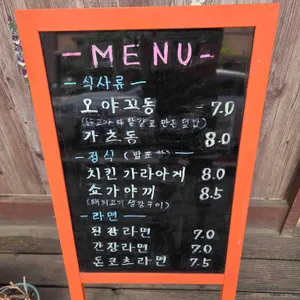 - MENU -
- 식사류 -
오야꼬동 - 7.0
(닭고기와 달걀로 만든 덮밥)
가츠동 8.0
- 정식 (밥포함) -
치킨 가라아게 8.0
쇼가야끼 8.5
(돼지고기 생강구이)
- 라멘 -
된장라멘 7.0
간장라멘 7.0
돈코츠라멘 7.5